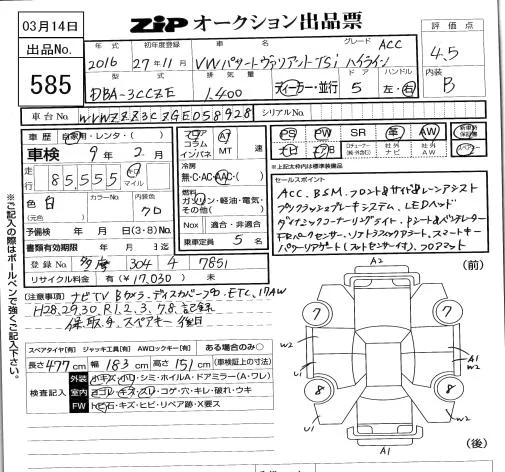 03月14日
ZIP オークション出品票
出品No.
585
年式
2016
初年度登録
27年11月
車名
VWパサートヴァリアントTSi ハイライン
グレード
ACC
評価点
4.5
内装
B
型式
DBA-3CCZE
排気量
1,400
ディーラー・並行
ドア
5
ハンドル
左・右
車台No.
WVWZZZ3CZGE058928
シリアルNo.
車歴 自家用・レンタ・( )
車検 9年 2月
走行 85,555 マイル
色
白
(元色)
カラーNo.
内装色
クロ
予備検 年 月 日(3・8)No.
書類有効期限 年 月 日迄
登録No. 多摩 304 4 7851
リサイクル料金 有(¥17,030)無
コラム
インパネ
AT
MT
速
冷房
無・C・AC・AAC・( )
燃料
ガソリン・軽油・電気・
その他( )
Nox 適合・非適合
乗車定員 5 名
PS PW SR 革 AW
ナビ AV
新車時保証書
スペアキー
※上記太枠内は標準装備品
セールスポイント
ACC、BSM、フロント&サイド&レーンアシスト
プリクラッシュブレーキシステム、LEDヘッド
ダイナミックコーナーリングライト、シートヒーター
FRパークセンサー、リアトラフィックアラート、スマートキー
パワーリアゲート(フットセンサー付)、フロアマット
(注意事項) ナビTV Bカメラ、ディスカバープロ、ETC、17AW
H28.29.30、R1.2.3 7.8 記録
保取、スペアキー 後日
スペアタイヤ[有] ジャッキ工具[有] AWロックキー[有] ある場合のみ○
長さ477cm 幅183cm 高さ151cm (車検証上の寸法)
検査記入
外装 小キズ・小凹・シミ・ホイルA・ドアミラー(A・ワレ)
室内 ヨゴレ・キズ・スレ・コゲ・穴・キレ・破れ・ウキ
FW トビ石・キズ・ヒビ・リペア跡・X要ス
※ご記入の際はボールペンで強くご記入下さい。
A2
(前)
7
7
W2
U1
W2
A1
W2
8
8
U1
W2
A1
(後)